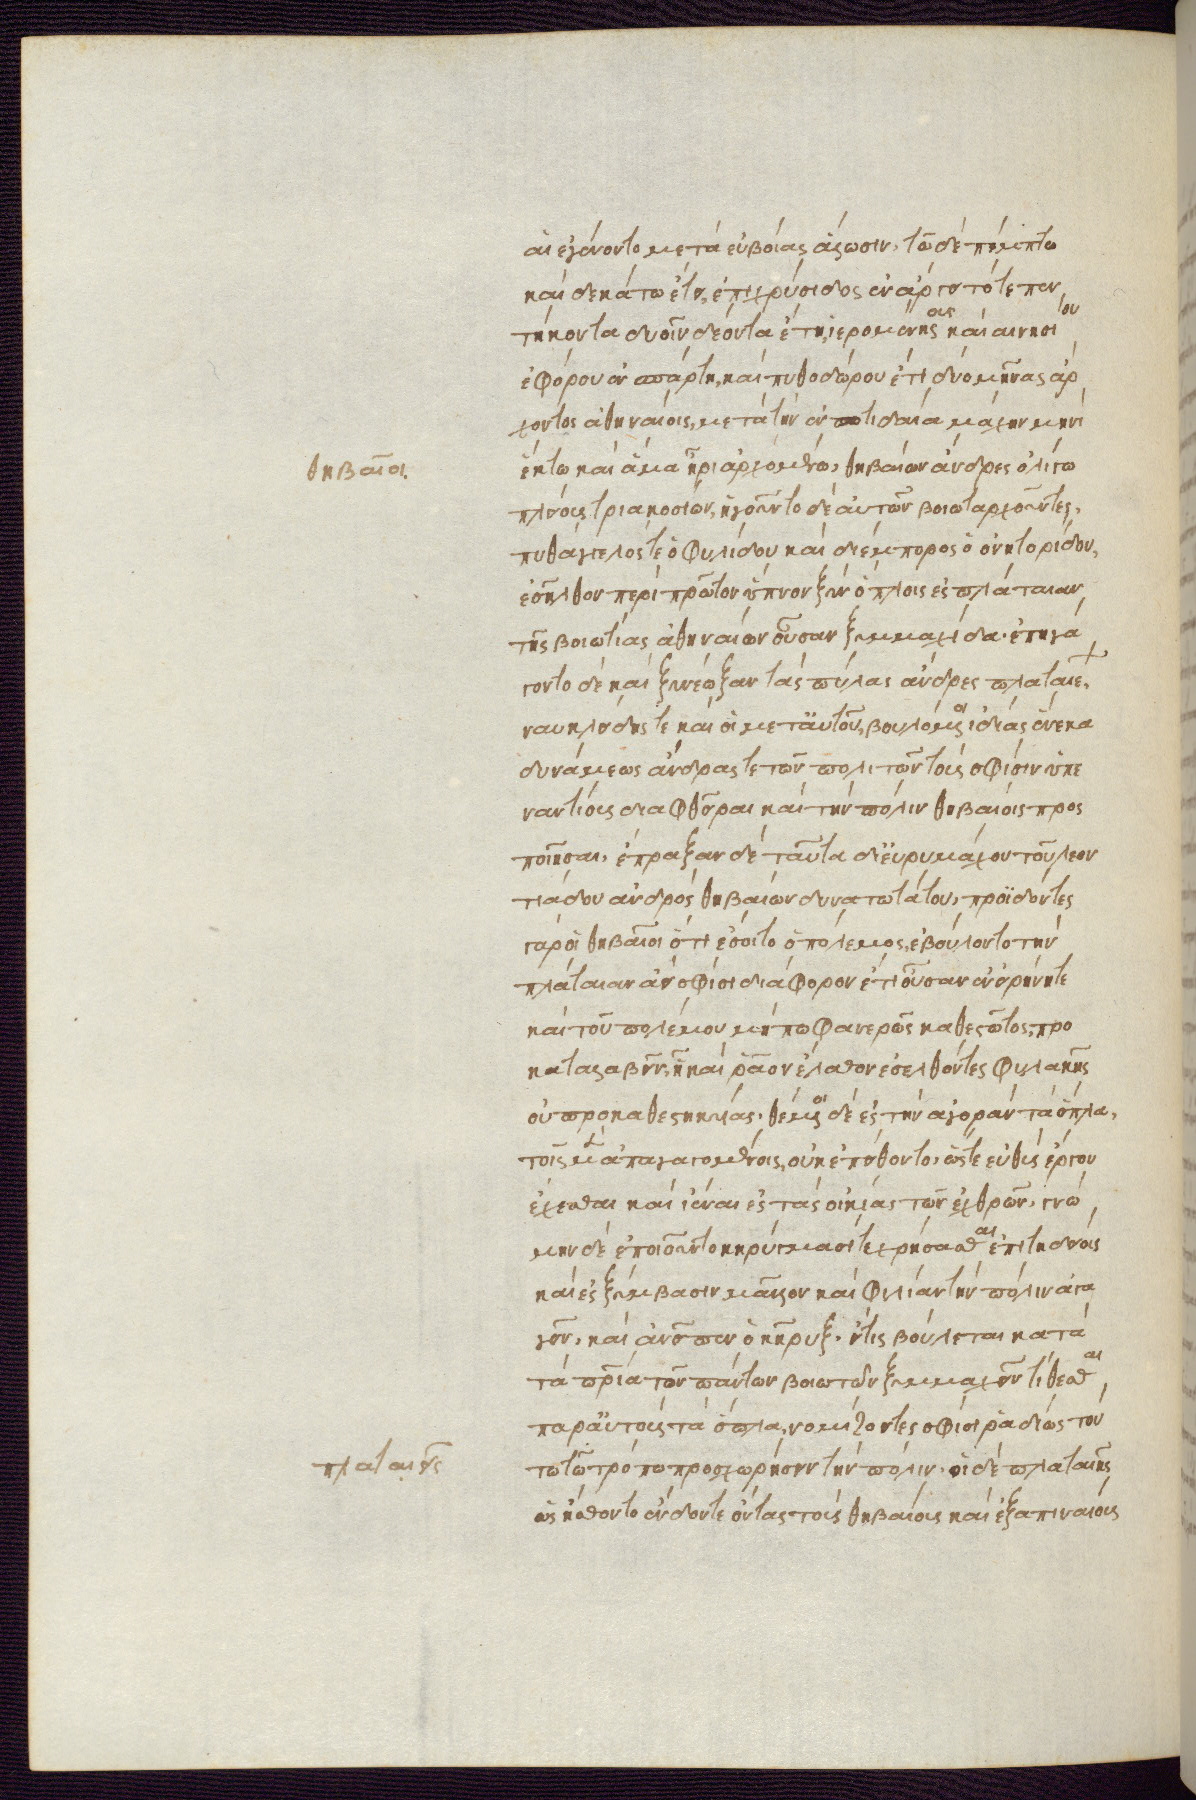 αἳ ἐγένοντο μετὰ εὐβοίας ἅλωσιν. τῷ δὲ πέμπτω
καὶ δεκάτω ἔτει, ἐπὶ χρύσιδος ἐν ἄργει τότε πεν
τήκοντα δυοῖν δέοντα ἔτη, ἱερωμένης καὶ αἰνησίου
ἐφόρου ἐν σπάρτη, καὶ πυθοδώρου ἔτι δύο μῆνας ἄρ
χοντος ἀθηναίοις, μετὰ τὴν ἐν ποτιδαία μάχην μηνὶ
θηβαῖοι.
ἕκτω καὶ ἅμα ἦρι ἀρχομένω, θηβαίων ἄνδρες ὀλίγω
πλείους τριακοσίων, ἡγοῦντο δὲ αὐτῶν βοιωταρχοῦντες,
πυθάγγελός τε ὁ φυλίδου καὶ διέμπορος ὁ ὀνητορίδου,
ἐσῆλθον περὶ πρῶτον ὕπνον ξὺν ὅπλοις ἐς πλάταιαν
τῆς βοιωτίας ἀθηναίων οὖσαν ξυμμαχίδα. ἐπηγά
γοντο δὲ καὶ ξυνέωξαν τὰς πύλας ἄνδρες πλαταιε,
ναυκλείδης τε καὶ οἱ μετ' αὐτοῦ, βουλόμενοι ἰδίας ἕνεκα
δυνάμεως ἄνδρας τε τῶν πολιτῶν τοὺς σφίσιν ὑπε
ναντίους διαφθεῖραι καὶ τὴν πόλιν θηβαίοις προς
ποιῆσαι. ἔπραξαν δὲ ταῦτα δι' εὐρυμάχου τοῦ λεον
τιάδου ἀνδρὸς θηβαίων δυνατωτάτου, προϊδόντες
γὰρ οἱ θηβαῖοι ὅτι ἔσοιτο ὁ πόλεμος, ἐβούλοντο τὴν
πλάταιαν ἀεὶ σφίσι διάφορον ἔτι οὖσαν ἐν εἰρήνη τε
καὶ τοῦ πολέμου μήπω φανεροῦ καθεστῶτος, προ
καταλαβεῖν, ἧ καὶ ῥᾷον ἔλαθον ἐσελθόντες φυλακῆς
οὐ προκαθεστηκυίας. θέμενοι δὲ ἐς τὴν ἀγορὰν τὰ ὅπλα,
τοῖς μὲν ἐπαγαγομένοις, οὐκ ἐπείθοντο, ὥστε εὐθὺς ἔργου
ἔχεσθαι καὶ ἰέναι ἐς τὰς οἰκίας τῶν ἐχθρῶν. γνώ
μην δὲ ἐποιοῦντο κηρύγμασί τε χρήσασθαι ἐπιτηδείοις
καὶ ἐς ξύμβασιν μᾶλλον καὶ φιλίαν τὴν πόλιν ἀγα
γεῖν. καὶ ἀνεῖπεν ὁ κῆρυξ. εἴτις βούλεται κατὰ
τὰ πάτρια τῶν πάντων βοιωτῶν ξυμμαχεῖν τίθεσθαι
παρ' αὐτοὺς τὰ ὅπλα, νομίζοντες σφίσι ῥαδίως τού
πλαταιεῖς
τω τῷ τρόπω προσχωρήσειν τὴν πόλιν. οἱ δὲ πλαταιῆς
ὡς ἤσθοντο ἔνδον τε ὄντας τοὺς θηβαίους καὶ ἐξαπιναίως